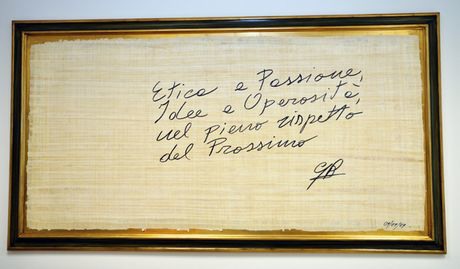 Etica e Passione,
Idee e Operosità,
nel pieno rispetto
del Prossimo